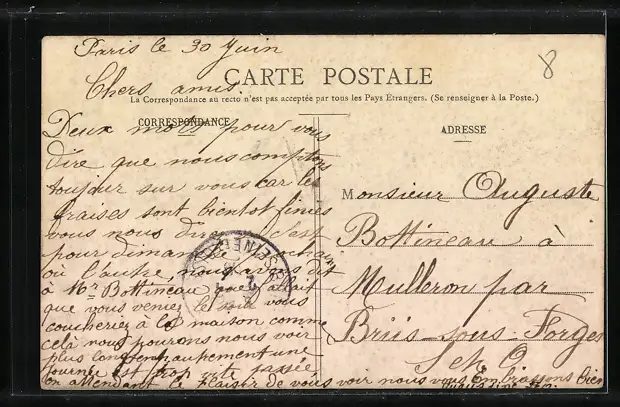 Paris le 30 Juin
Chers amis
CARTE POSTALE
La Correspondance au recto n'est pas acceptée par tous les Pays Étrangers. (Se renseigner à la Poste.)
CORRESPONDANCE
Deux mots pour vous
dire que nous comptons
toujour sur vous car les
fraises sont bientot finies
vous nous c'est
pour dimanche prochain
où l'autre nous avons dit
à Mr Bottineau
que vous veniez le soir vous
coucheriez à la maison comme
celà nous pourons nous voir
plus une
journée est trop vite passée
en attendant le plaisir de vous voir nous vous embrassons bien
ADRESSE
Monsieur Auguste
Bottineau à
Mulleron par
Briis-sous-Forges
S et O
SEINE